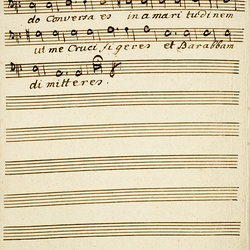 do Conversa es in a mari tudinem
ut me Cruci figeres et Barabbam
di mitteres.